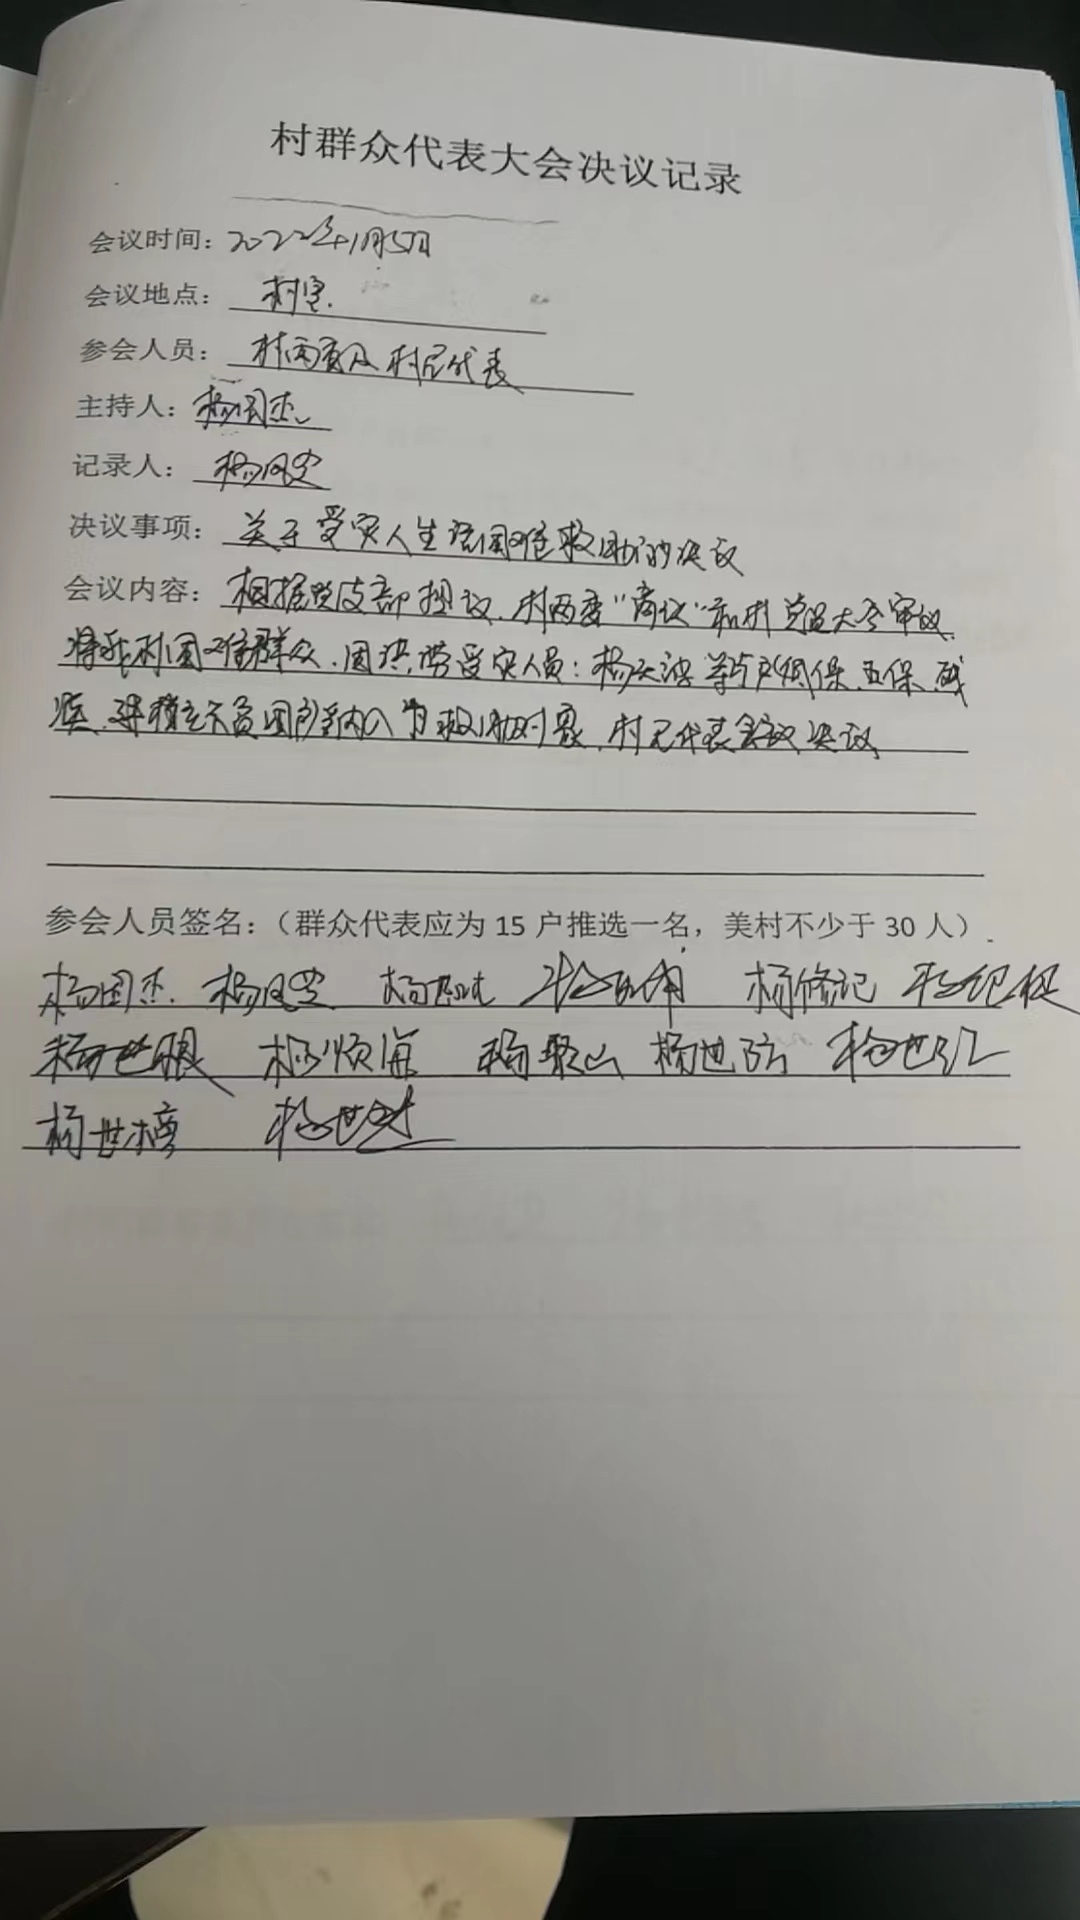 村群众代表大会决议记录
会议时间：2022年1月5日
会议地点：村室.
参会人员：村两委及村民代表
主持人：杨国杰
记录人：杨风安
决议事项：关于受灾人生活困难救助的决议
会议内容：根据党支部提议.村两委“商议”和村党员大会审议.
将我村困难群众.因洪涝受灾人员：杨 等 户低保.五保.残
疾. 困户 纳入为救助对象.村民代表会议决议
参会人员签名：（群众代表应为 15 户推选一名，美村不少于 30 人）.
杨国杰. 杨风安 杨 杨修记
杨世银 杨顺海 杨聚山 杨世防 杨世
杨世榜 杨世